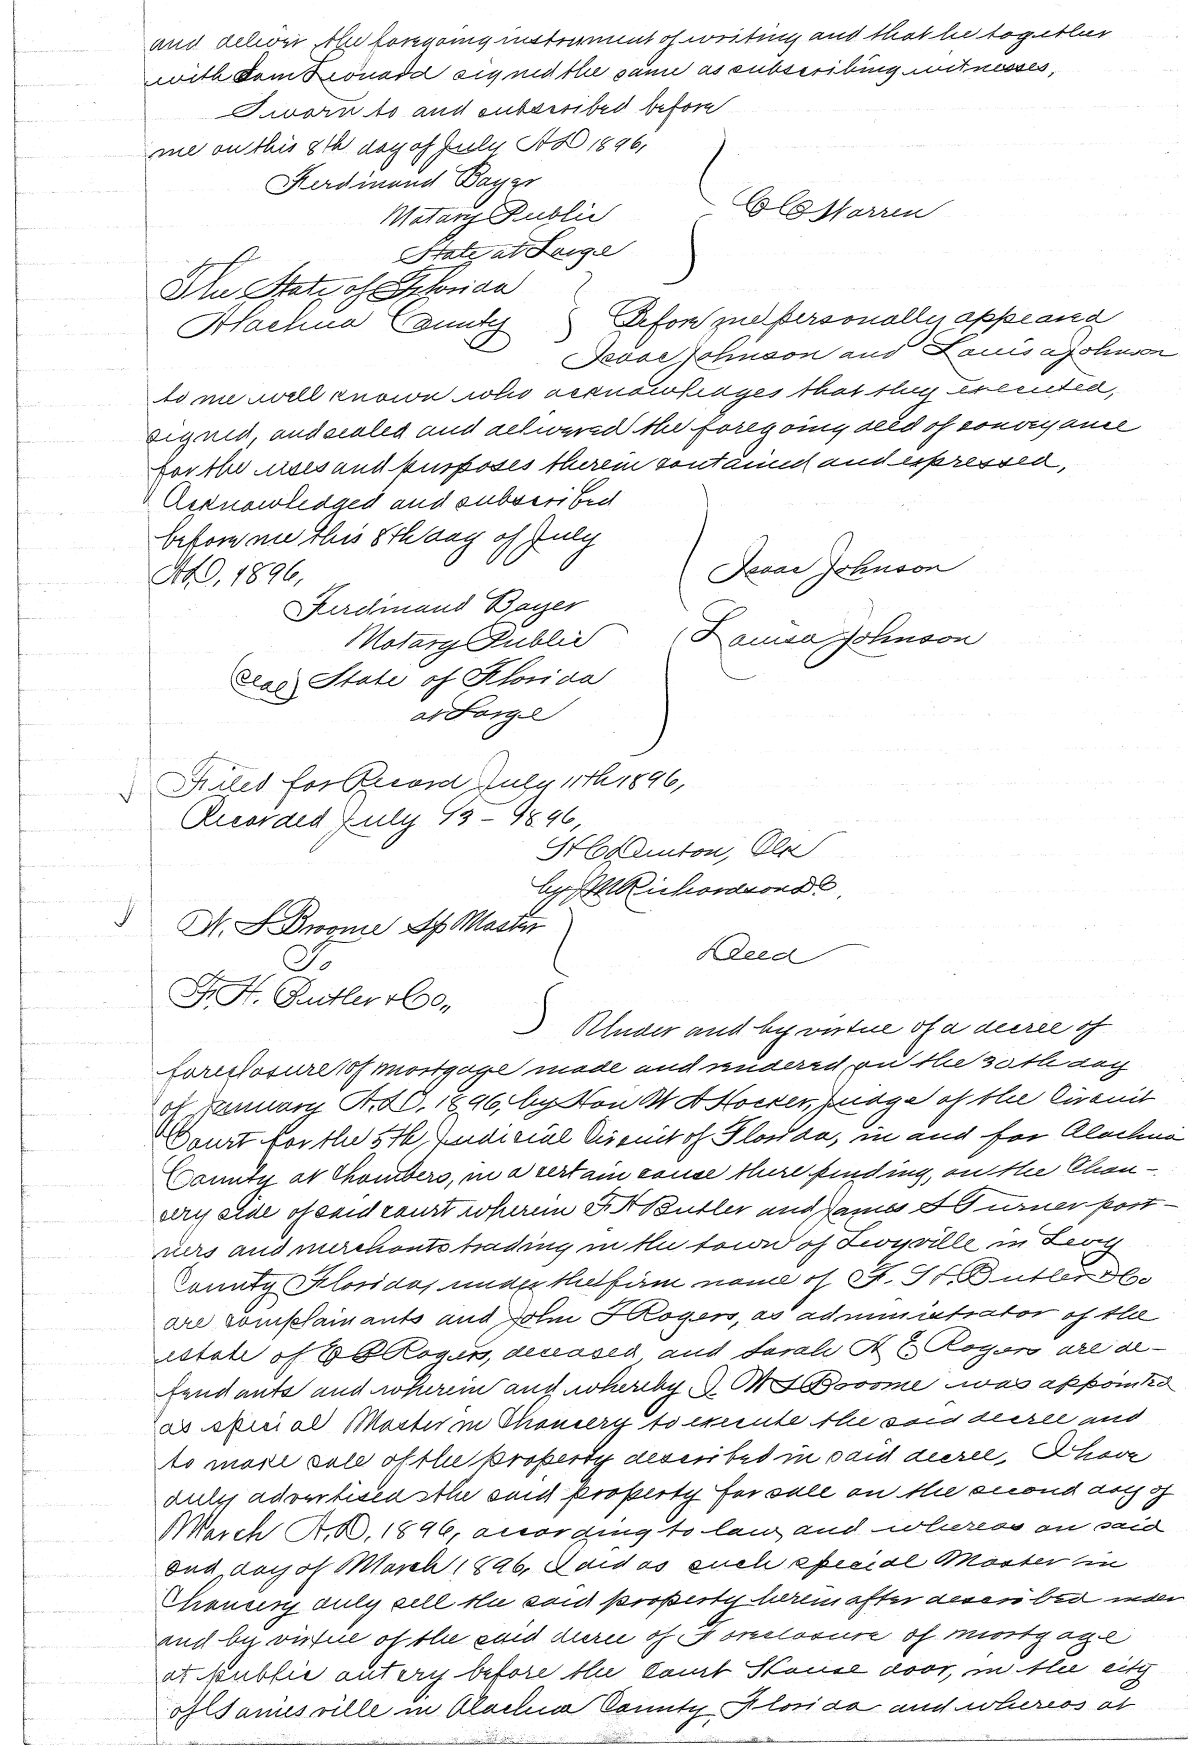 and deliver the foregoing instrument of writing and that he together
with Sam Leonard signed the same as subscribing witnesses,
Sworn to and subscribed before
me on this 8th day of July AD 1896,
Ferdinand Bayer
Notary Public
State at Large
C C Warren
The State of Florida
Alachua County
Before me personally appeared
Isaac Johnson and Louisa Johnson
to me well known who acknowledges that they executed,
signed, and sealed and delivered the foregoing deed of conveyance
for the uses and purposes therein contained and expressed,
Acknowledged and subscribed
before me this 8th day of July
AD, 1896,
Isaac Johnson
Ferdinand Bayer
Notary Public
Louisa Johnson
(Seal) State of Florida
at Large
Filed for Record July 11th 1896,
Recorded July 13 - 1896,
H C Denton, Clk
by M Richardson D C,
W. S. Broome Sp Master
Deed
To
F. H. Butler & Co,,
Under and by virtue of a decree of
foreclosure of mortgage made and rendered on the 30th day
of January A.D. 1896, by Hon W A Hocker, Judge of the Circuit
Court for the 5th Judicial Circuit of Florida, in and for Alachua
County at Chambers, in a certain cause there pending, on the Chan-
cery side of said court wherein F H Butler and James S Turner part-
ners and merchants trading in the town of Levyville in Levy
County Florida, under the firm name of F. H. Butler & Co
are complainants and John F Rogers, as administrator of the
estate of C B Rogers, deceased, and Sarah A E Rogers are de-
fendants and wherein and whereby I W S Broome was appointed
as special Master in Chancery to execute the said decree and
to make sale of the property described in said decree, I have
duly advertised the said property for sale on the second day of
March A.D. 1896, according to law, and whereas on said
2nd day of March 1896, I did as such special Master in
Chancery duly sell the said property herein after described under
and by virtue of the said decree of Foreclosure of mortgage
at public outcry before the Court House door, in the city
of Gainesville in Alachua County, Florida and whereas at